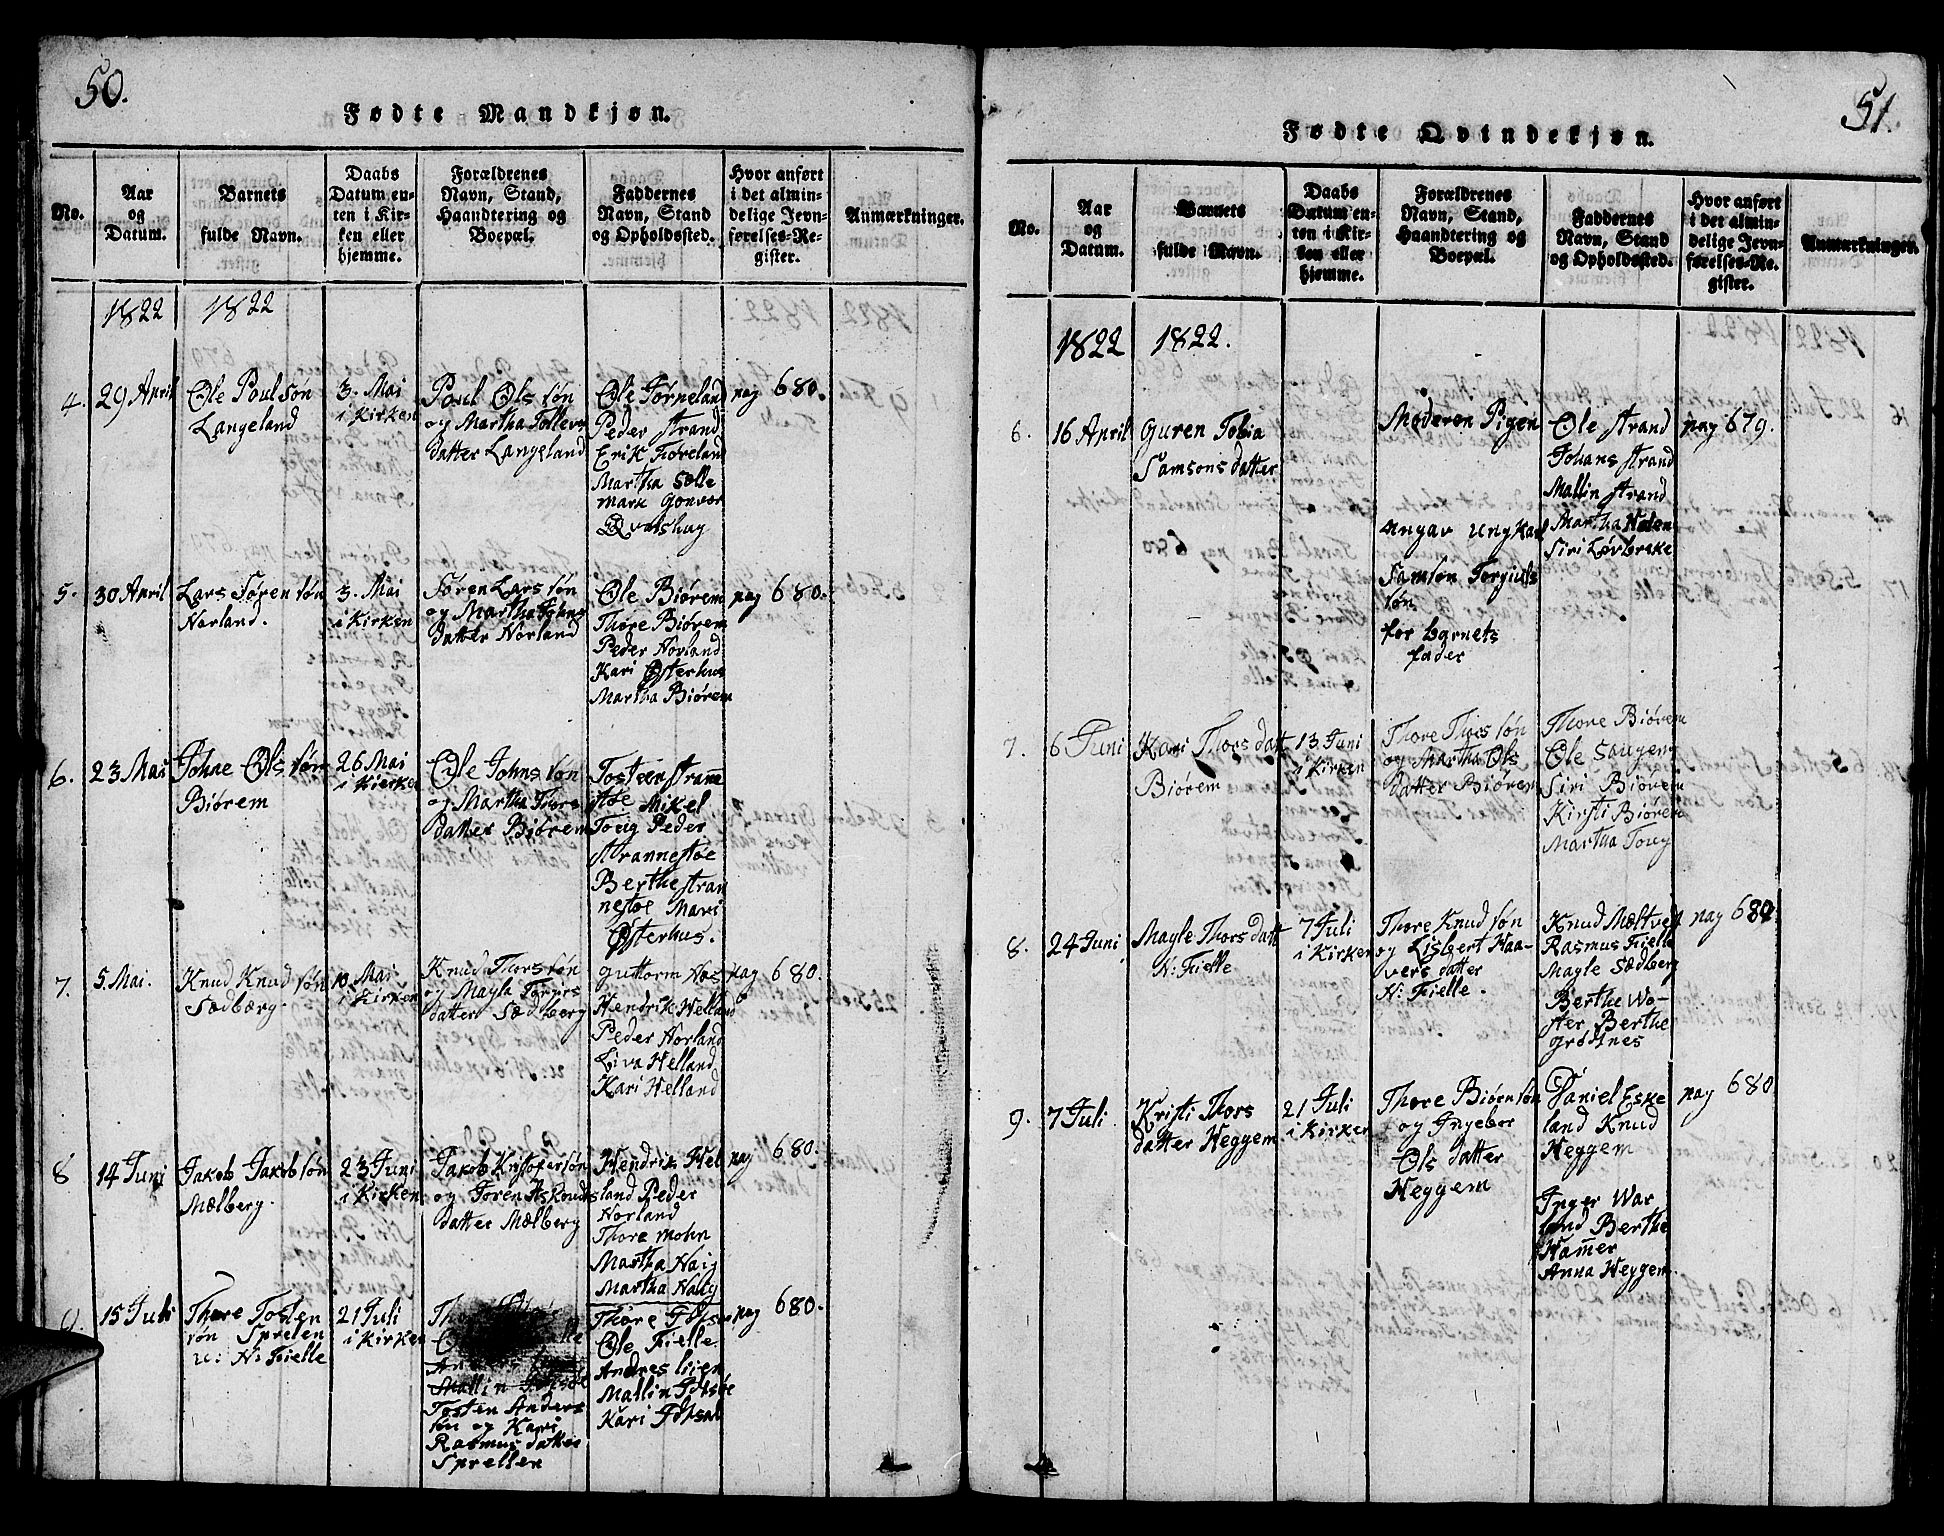 50.
Fødte Mandkjøn.
No.
Aar
og
Datum.
Barnets
fulde Navn.
Daabs
Datum en-
ten i Kir-
ken eller
hjemme.
Forældrenes
Navn, Stand,
Haandtering og
Boepæl.
Faddernes
Navn, Stand
og Opholdssted.
Hvor anført
i det almin-
delige Jevn-
førelses-Re-
gister.
Anmærkninger.
1822
1822
4.
29 April
Ole Poulsøn
Langeland
3. Mai
i Kirken
Poul Ols søn
og Martha Tollevs
datter Langeland
Ole Tørneland
Peder Strand
Erik Tioreland
Martha Sølle
mark Gonvor
Qvalshug
pag 680.
5.
30 April
Lars Søren søn
Norland.
3. Mai
i Kirken
Søren Lars søn
og Martha Johns
datter Norland
Ole Biørem
Thore Biørem
Peder Norland
Kari Østerhus
Martha Biørem
pag 680.
6.
23 Mai
Johne Ols søn
Biørem
26 Mai
i Kierken
Ole Johns søn
og Martha Thors
datter Biørem
Tosteen Stranne
støe Mikel
Toug Peder
Strannestøe
Berthe Stran
nestøe Mari
Østerhus.
7.
5. Mai.
Knud Knud søn
Sædbærg
10 Mai
i Kirken
Knud Thors søn
og Mayla Torgers
datter Sædberg
guttorm Nos
Hendrik Helland
Peder Norland
Liva Helland
Kari Helland
pag 680.
8
14 Juni
Jakob Jakob søn
Mælberg.
23 Juni
i Kirken
Jakob Kristofer søn
og Toren Askouds
datter Mælberg
Hendrik Hel
land Peder
Norland
Thore mohn
Martha Haig
Martha Haug
pag 680.
9.
15 Juli
Thore Tosten
søn Sprelen
u: N: Fielle
21 Juli
i Kirken
Mallin
Tosten Anders
søn og Kari
Rasmus datter
Sprellen
Thore Fotsæ
Ole Fielle
Andres lien
Mallin Fotsæe
Kari Fotsæ
pag 680.
51.
Fødte Qvindekjøn.
No.
Aar
og
Datum.
Barnets
fulde Navn.
Daabs
Datum en-
ten i Kir-
ken eller
hjemme.
Forældrenes
Navn, Stand,
Haandtering og
Boepæl.
Faddernes
Navn, Stand
og Opholdssted.
Hvor anført
i det almin-
delige Jevn-
førelses-Re-
gister.
Anmærkninger.
1822
1822.
6.
16 April
Guren Tobia
Samsons datter
Moderen Pigen
angav Ungkarl
Samson Torguls
søn
for barnets
fader
Ole Strand
Johans Strand
Mallin Strand
Martha Holen
Siri Løvbrekke
pag 679.
7.
6 Juni
Kari Thors datt
Biørem
13 Juni
i Kirken
Thore Thors søn
og Martha Ols
datter Biørem
Thore Biørem
Ole Saugen
Siri Biørem
Kirsti Biørem
Martha Toug
8.
24 Juni
Mayle Thors datt
N: Fielle
7 Juli
i Kirken
Thore Knud søn
og Lisbert Haa-
vers datter
N: Fielle.
Knud Mæltveit
Rasmus Fielle
Mayle Sædberg
Berthe Wo-
ster Berthe
grødtnes
pag 680.
9.
7 Juli
Kristi Thors
datter Heggem
21 Juli
i Kirken
Thore Biørn søn
og Ingebor
Ols datter
Heggem
Daniel Eske
land Knud
Heggem
Inger War
land Berthe
Hamer
Anna Heggem
pag 680